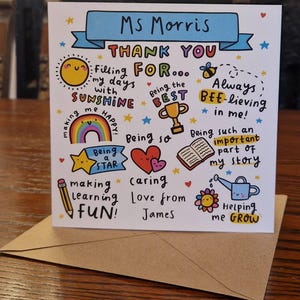 Ms Morris
THANK YOU
FOR...
Filling
my days
with
SUNSHINE
Being the
BEST
Always
BEE-lieving
in me!
making me HAPPY!
Being so
caring
Being such an
important
part of
my story
Being
a
STAR
making
learning
FUN!
Love from
James
Helping
me GROW